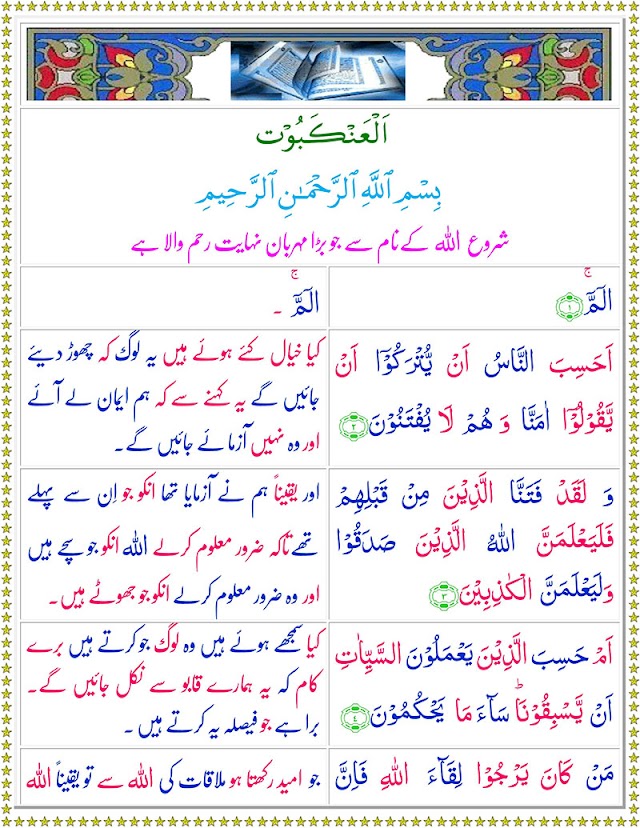 اَلْعَنْكَبُوْت
بِسْمِ ٱللَّهِ ٱلرَّحْمَـٰنِ ٱلرَّحِيمِ
شروع اللہ کے نام سے جو بڑا مہربان نہایت رحم والا ہے
الٓمّٓ ۚ ﴿۱﴾
الٓمّٓ ۚ ۔
اَحَسِبَ النَّاسُ اَنْ يُّتْرَكُوْۤا اَنْ
يَّقُوْلُوْۤا اٰمَنَّا وَ هُمْ لَا يُفْتَنُوْنَ ﴿۲﴾
کیا خیال کئے ہوئے ہیں یہ لوگ کہ چھوڑ دیئے
جائیں گے یہ کہنے سے کہ ہم ایمان لے آئے
اور وہ نہیں آزمائے جائیں گے۔
وَ لَقَدْ فَتَنَّا الَّذِيْنَ مِنْ قَبْلِهِمْ
فَلَيَعْلَمَنَّ اللهُ الَّذِيْنَ صَدَقُوْا
وَلَيَعْلَمَنَّ الْكٰذِبِيْنَ ﴿۳﴾
اور یقیناً ہم نے آزمایا تھا انکو جو اِن سے پہلے
تھے تاکہ ضرور معلوم کرلے اللہ انکو جو سچے ہیں
اور وہ ضرور معلوم کرلے انکو جو جھوٹے ہیں۔
اَمْ حَسِبَ الَّذِيْنَ يَعْمَلُوْنَ السَّيِّاٰتِ
اَنْ يَّسْبِقُوْنَا ؕ سَآءَ مَا يَحْكُمُوْنَ ﴿۴﴾
کیا سمجھے ہوئے ہیں وہ لوگ جو کرتے ہیں برے
کام کہ یہ ہمارے قابو سے نکل جائیں گے۔
برا ہے جو فیصلہ یہ کرتے ہیں ۔
مَنْ كَانَ يَرْجُوْا لِقَآءَ اللهِ فَاِنَّ
جو امید رکھتا ہو ملاقات کی اللہ سے تو یقیناً اللہ